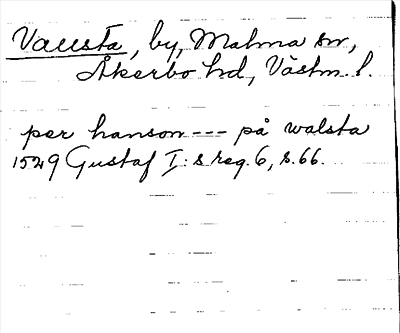 Vallsta, by, Malma sn,
Åkerbo hd, Västm. l.
per hanson --- på walsta
1529 Gustaf I:s reg. 6, s. 66.